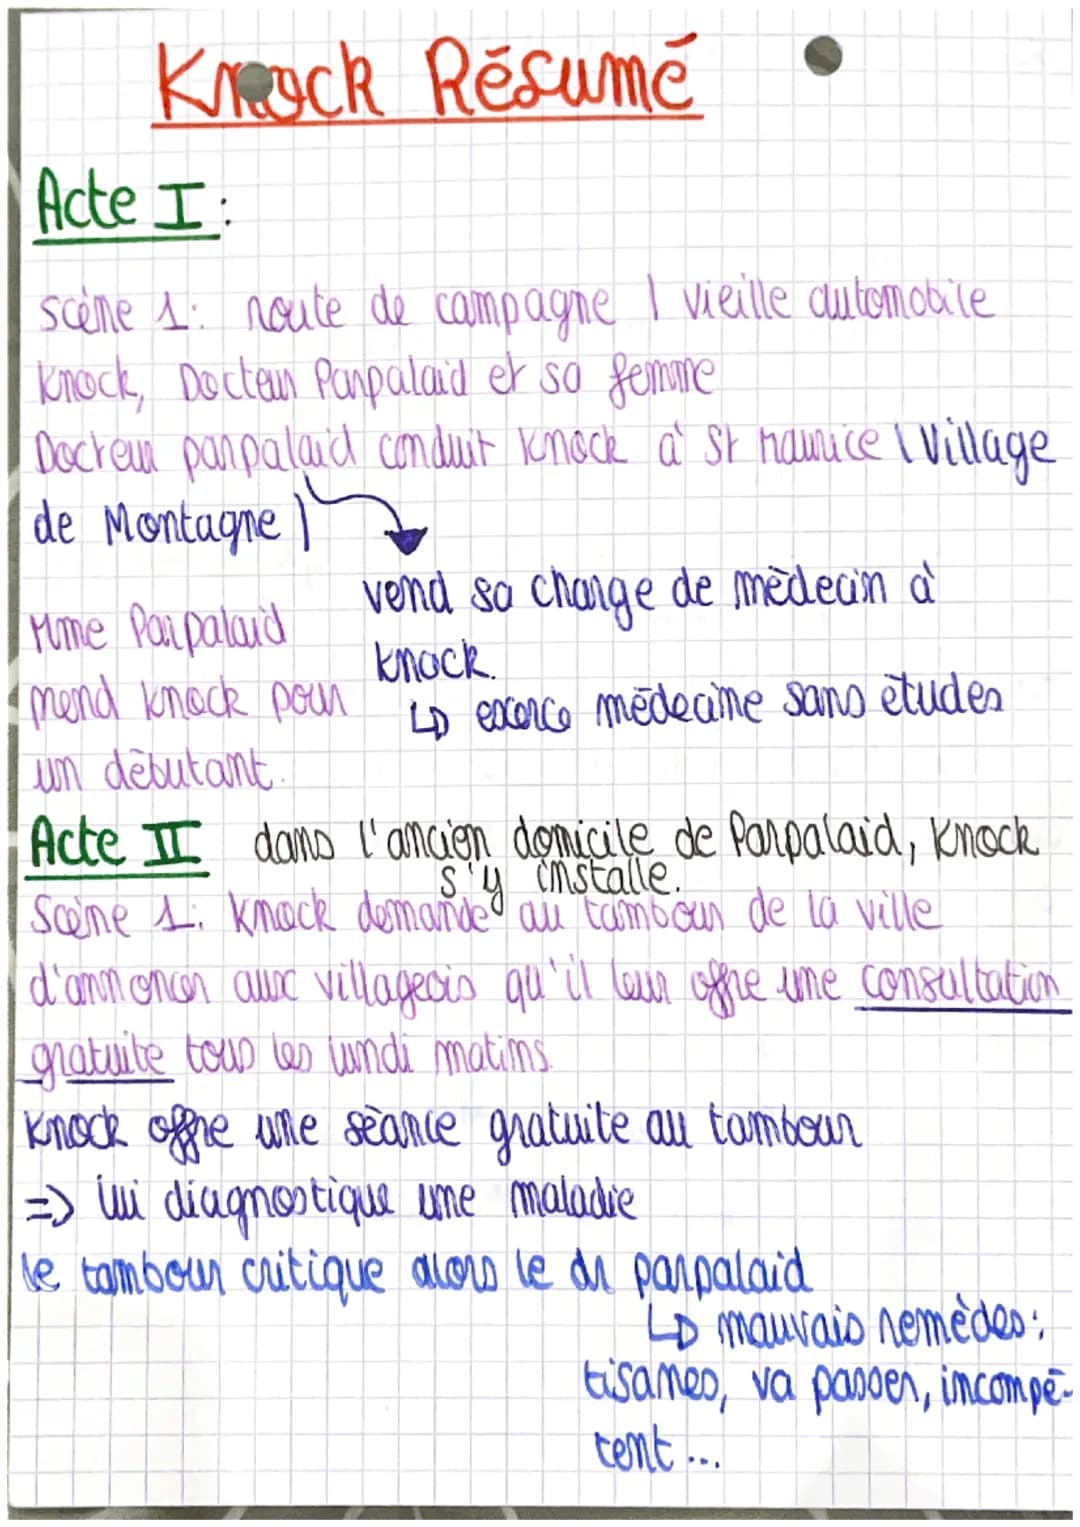 Knock Résumé
Acte I :
scène 1: route de campagne / vieille automobile
Knock, Docteur Parpalaid et sa femme
Docteur parpalaid conduit Knock à St Maurice (Village
de Montagne)
vend sa charge de médecin à
knock.
↳ exerce médecine sans études
Mme Parpalaid
prend knock pour
un débutant.
Acte II dans l'ancien domicile de Parpalaid, Knock
s'y installe.
Scène 1: Knock demande au tambour de la ville
d'annoncer aux villageois qu'il leur offre une consultation
gratuite tous les lundi matins.
Knock offre une séance gratuite au tambour
=> lui diagnostique une maladie
le tambour critique alors le dr parpalaid
↳ mauvais remèdes:
tisanes, va passer, incompé-
tent ...